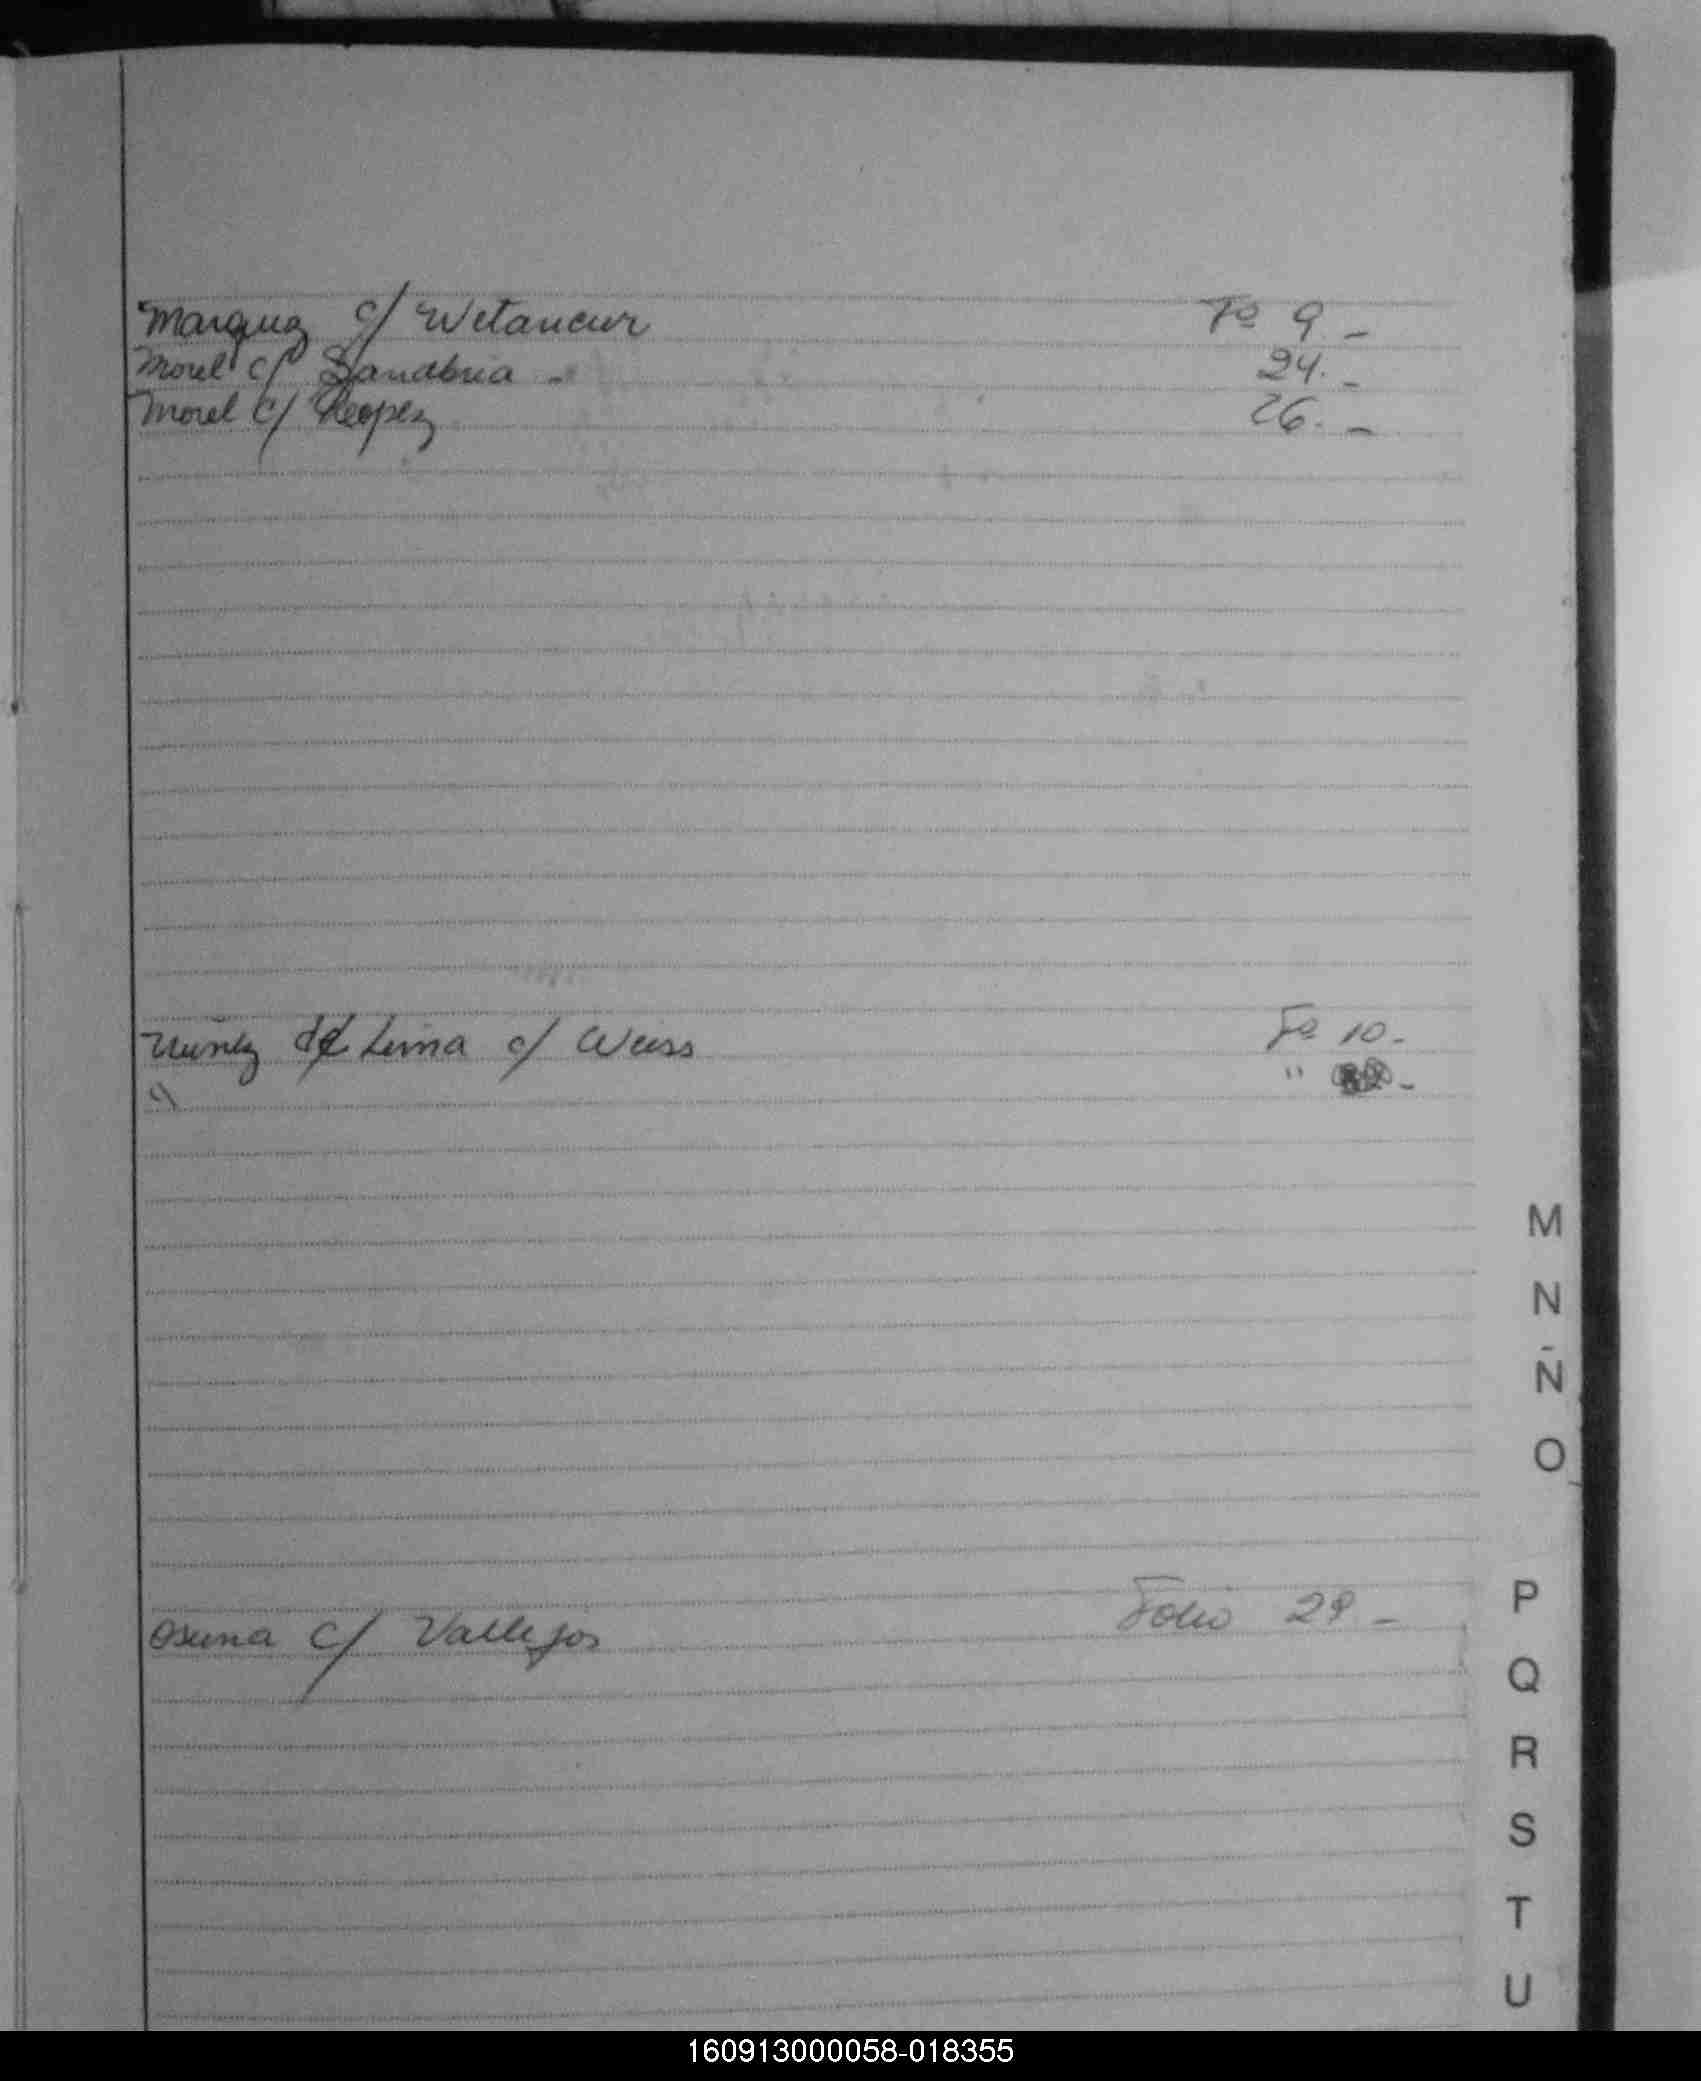 Marquez c/ Wetancur Fº 9.-
Morel c/ Sanabria - 24.-
Morel c/ Leopez 26.-
Nuñez de Lima c/ Weiss Fº 10.-
" -
M
N
Ñ
O
Osuna c/ Vallejos Folio 29-
P
Q
R
S
T
U
160913000058-018355